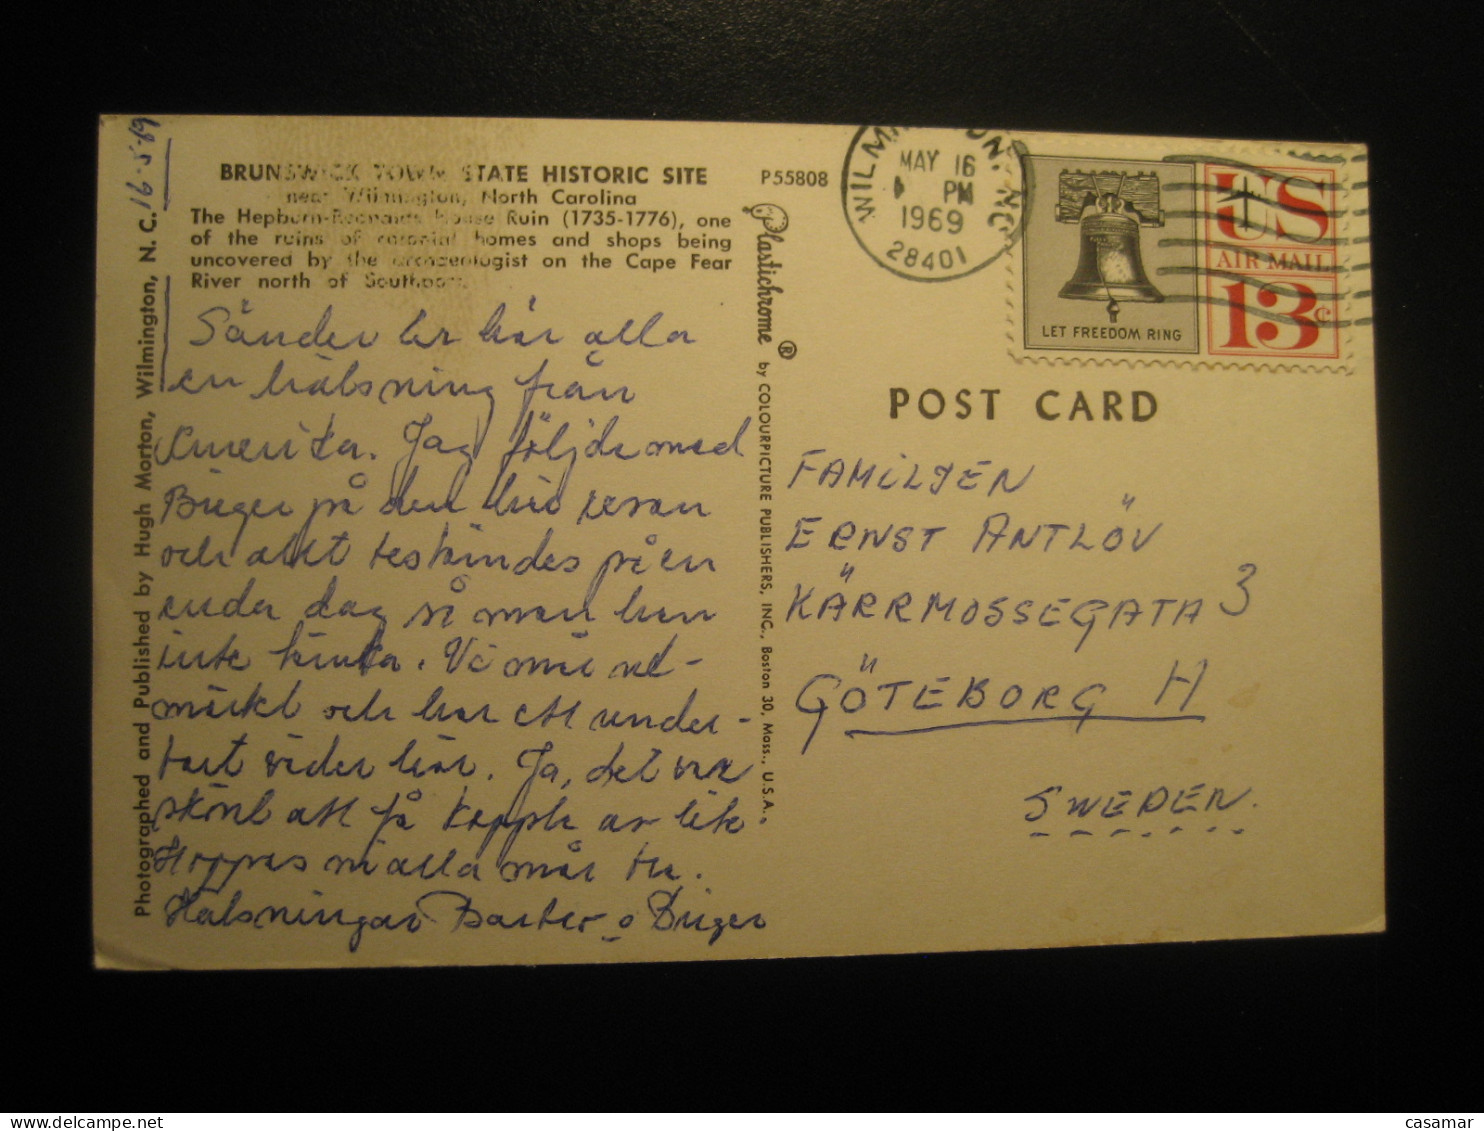 BRUNSWICK TOWN STATE HISTORIC SITE
near Wilmington, North Carolina
The Hepburn-Reonalds House Ruin (1735-1776), one
of the ruins of colonial homes and shops being
uncovered by the archaeologist on the Cape Fear
River north of Southport.
P55808
16-5-69
Photographed and Published by Hugh Morton, Wilmington, N. C.
Plastichrome ® by COLOURPICTURE PUBLISHERS, INC., Boston 30, Mass., U.S.A.
Sänder er här alla
en hälsning från
Amerika. Jag följde med
Birger på den här resan
och allt beskrivdes på en
enda dag så man han
inte tänka. Vi mår ut-
märkt och har ett under-
bart väder här. Ja, det var
skönt att få koppla av lite
Hoppas ni alla mår bra.
Hälsningar o Birger
WILMINGTON, NC
MAY 16
PM
1969
28401
LET FREEDOM RING
US
AIR MAIL
13c
POST CARD
FAMILJEN
ERNST ANTLÖV
KÄRRMOSSEGATA 3
GÖTEBORG H
SWEDEN.
www.delcampe.net
casamar